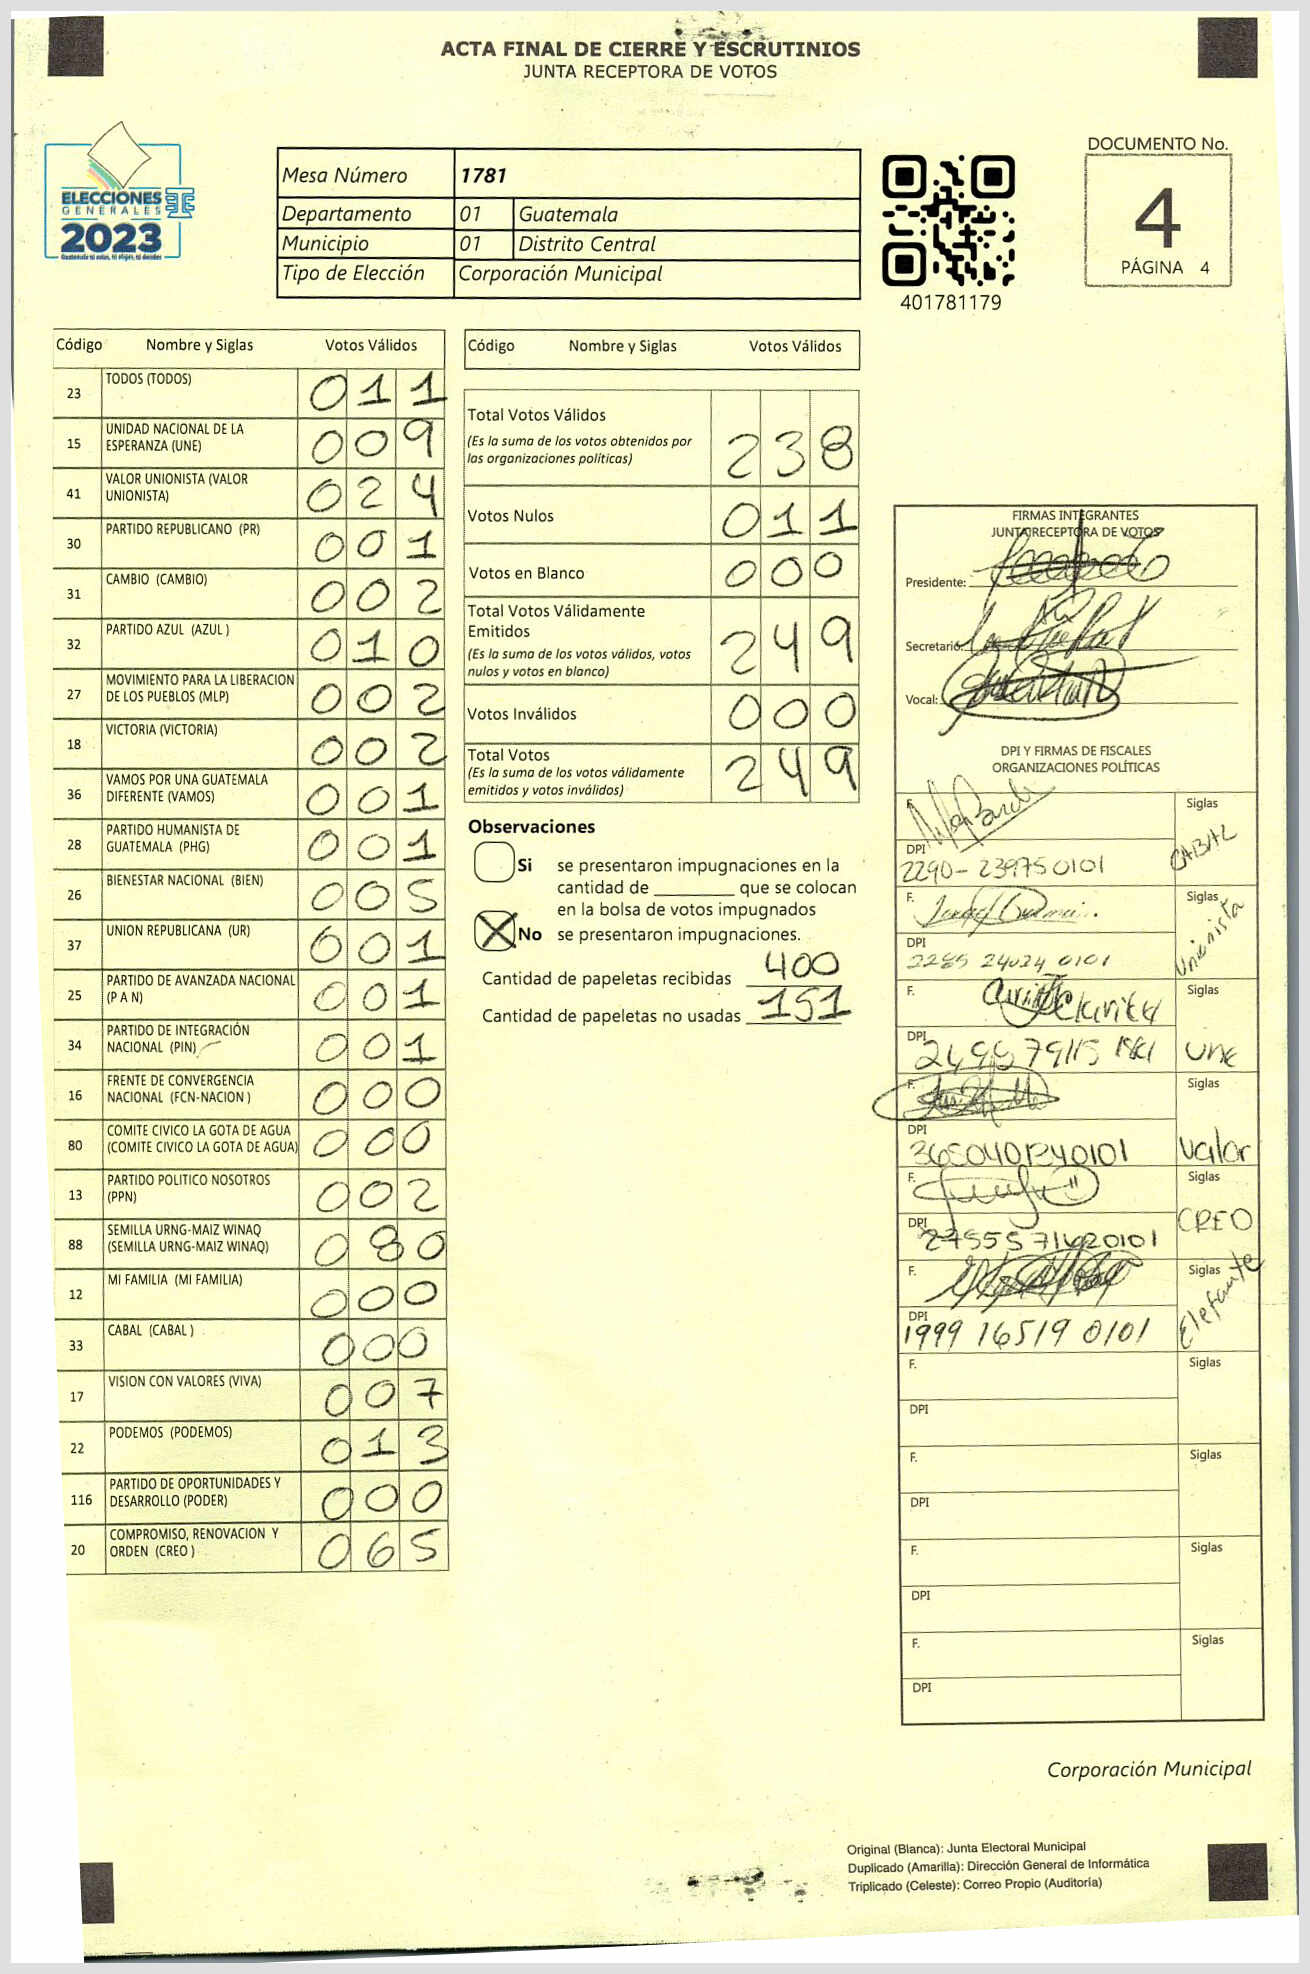 ACTA FINAL DE CIERRE Y ESCRUTINIOS
JUNTA RECEPTORA DE VOTOS
ELECCIONES
GENERALES
2023
Mesa Número 1781
Departamento 01 Guatemala
Municipio 01 Distrito Central
Tipo de Elección Corporación Municipal
401781179
DOCUMENTO No.
4
PÁGINA 4
Código Nombre y Siglas Votos Válidos
23 TODOS (TODOS) 011
15 UNIDAD NACIONAL DE LA
ESPERANZA (UNE) 009
41 VALOR UNIONISTA (VALOR
UNIONISTA) 024
30 PARTIDO REPUBLICANO (PR) 001
31 CAMBIO (CAMBIO) 002
32 PARTIDO AZUL (AZUL ) 010
27 MOVIMIENTO PARA LA LIBERACION
DE LOS PUEBLOS (MLP) 002
18 VICTORIA (VICTORIA) 002
36 VAMOS POR UNA GUATEMALA
DIFERENTE (VAMOS) 001
28 PARTIDO HUMANISTA DE
GUATEMALA (PHG) 001
26 BIENESTAR NACIONAL (BIEN) 005
37 UNION REPUBLICANA (UR) 001
25 PARTIDO DE AVANZADA NACIONAL
(P A N) 001
34 PARTIDO DE INTEGRACIÓN
NACIONAL (PIN) 001
16 FRENTE DE CONVERGENCIA
NACIONAL (FCN-NACION ) 000
80 COMITE CIVICO LA GOTA DE AGUA
(COMITE CIVICO LA GOTA DE AGUA) 000
13 PARTIDO POLITICO NOSOTROS
(PPN) 002
88 SEMILLA URNG-MAIZ WINAQ
(SEMILLA URNG-MAIZ WINAQ) 080
12 MI FAMILIA (MI FAMILIA) 000
33 CABAL (CABAL ) 000
17 VISION CON VALORES (VIVA) 007
22 PODEMOS (PODEMOS) 013
116 PARTIDO DE OPORTUNIDADES Y
DESARROLLO (PODER) 000
20 COMPROMISO, RENOVACION Y
ORDEN (CREO ) 065
Código Nombre y Siglas Votos Válidos
Total Votos Válidos
(Es la suma de los votos obtenidos por
las organizaciones políticas) 238
Votos Nulos 011
Votos en Blanco 000
Total Votos Válidamente
Emitidos
(Es la suma de los votos válidos, votos
nulos y votos en blanco) 249
Votos Inválidos 000
Total Votos
(Es la suma de los votos válidamente
emitidos y votos inválidos) 249
Observaciones
Si se presentaron impugnaciones en la
cantidad de que se colocan
en la bolsa de votos impugnados
No se presentaron impugnaciones.
Cantidad de papeletas recibidas 400
Cantidad de papeletas no usadas 151
FIRMAS INTEGRANTES
JUNTA RECEPTORA DE VOTOS
Presidente:
Secretario:
Vocal:
DPI Y FIRMAS DE FISCALES
ORGANIZACIONES POLÍTICAS
F. Siglas
DPI CABAL
2290-23975 0101
F. Siglas
DPI Unionista
2285 24024 0101
F. Siglas
DPI UNE
F. Siglas
DPI Valor
F. Siglas
DPI CREO
F. Siglas
DPI Elefante
1999 16519 0101
F. Siglas
DPI
F. Siglas
DPI
F. Siglas
DPI
F. Siglas
DPI
Corporación Municipal
Original (Blanca): Junta Electoral Municipal
Duplicado (Amarilla): Dirección General de Informática
Triplicado (Celeste): Correo Propio (Auditoría)